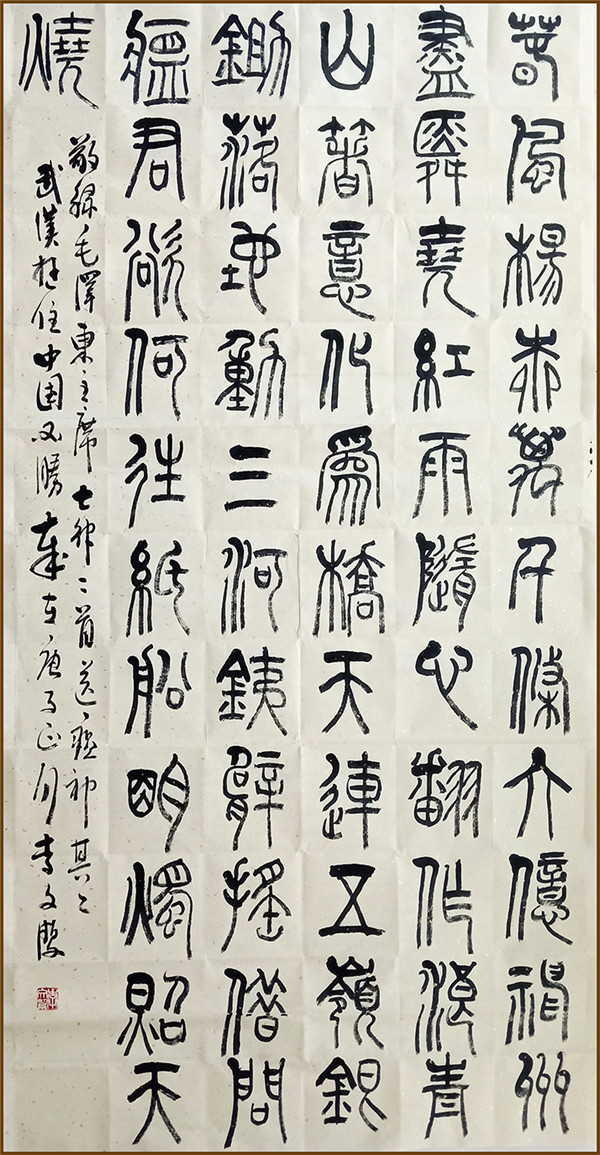 春風楊柳萬千條六億神州
盡舜堯紅雨隨心翻作浪青
山著意化爲橋天連五嶺銀
鋤落地動三河銕臂搖借問
瘟君欲何往紙船明燭照天
燒
敬録毛澤東主席七律二首送瘟神其二
武漢挺住中国必勝歲在庚子正月李文